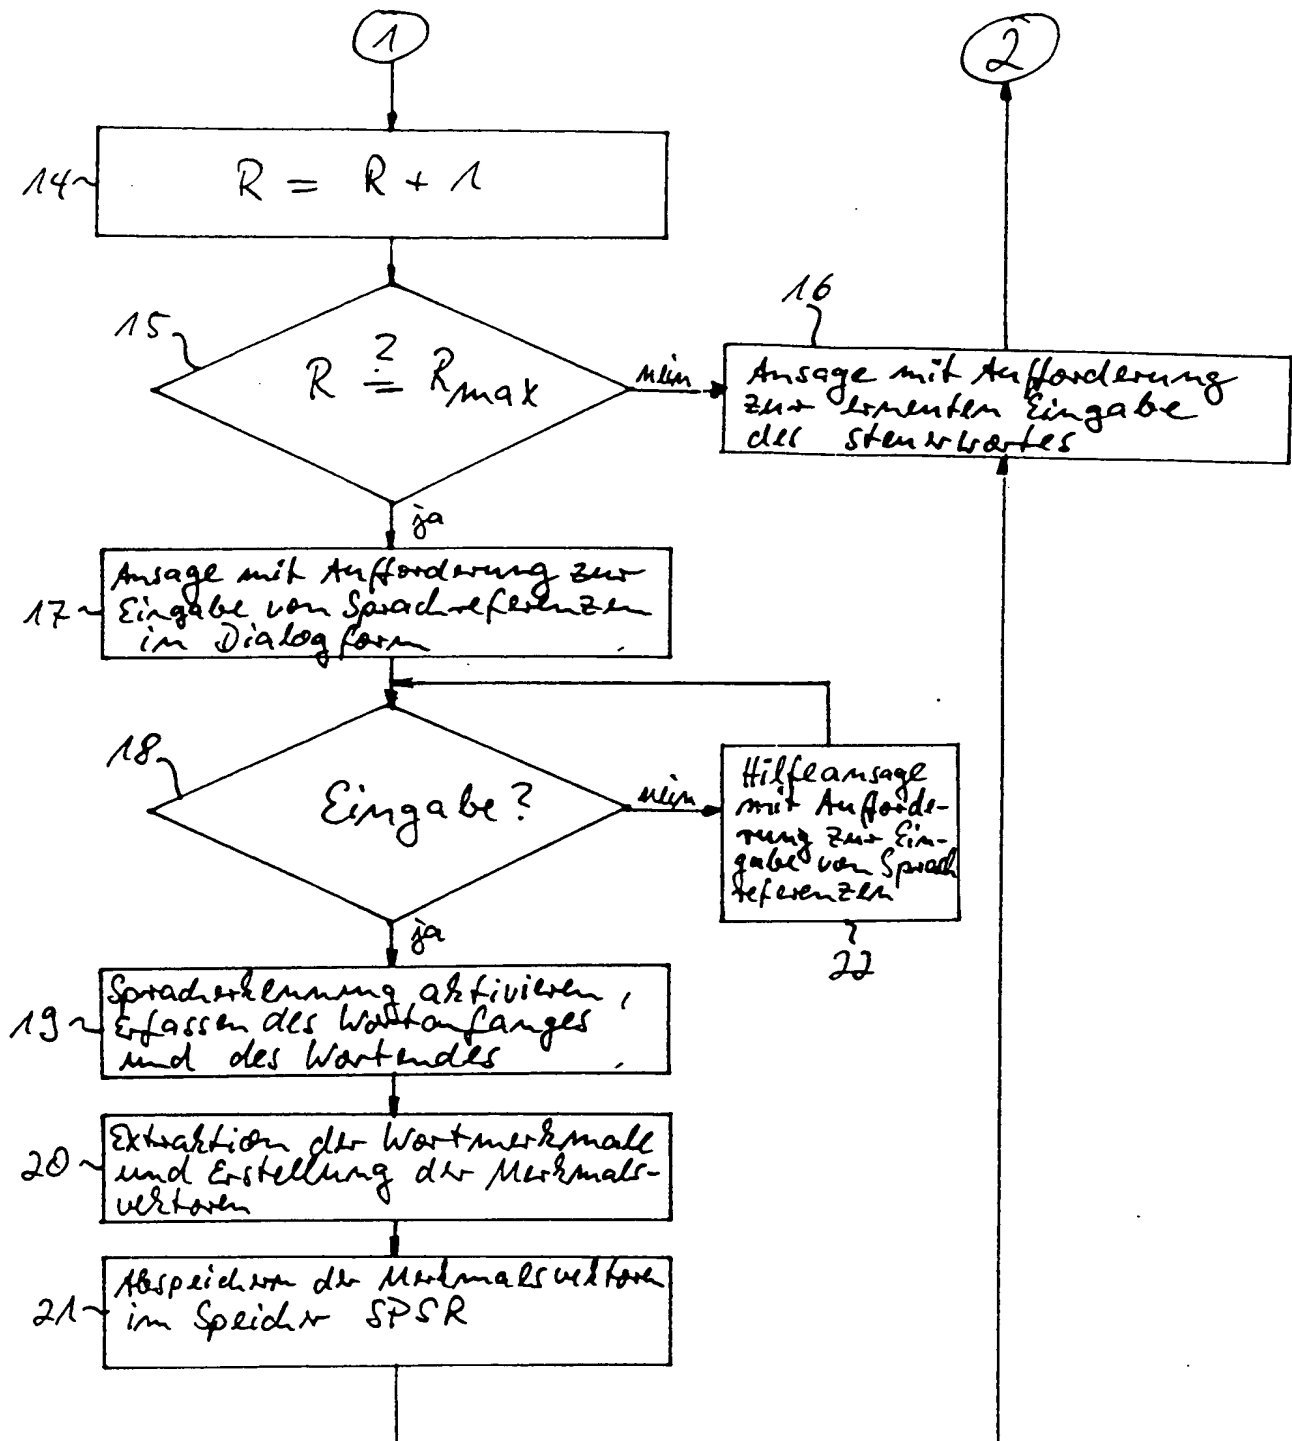 1
2
14
R = R + 1
15
R ?= Rmax
nein
16
Ansage mit Aufforderung
zur erneuten Eingabe
des Steuerwortes
ja
17
Ansage mit Aufforderung zur
Eingabe von Sprachreferenzen
in Dialogform
18
Eingabe?
nein
Hilfeansage
mit Aufforde-
rung zur Ein-
gabe von Sprach
referenzen
22
ja
19
Spracherkennung aktivieren,
Erfassen des Wortanfanges
und des Wortendes
20
Extraktion der Wortmerkmale
und Erstellung der Merkmals-
vektoren
21
Abspeichern der Merkmalsvektoren
im Speicher SPSR